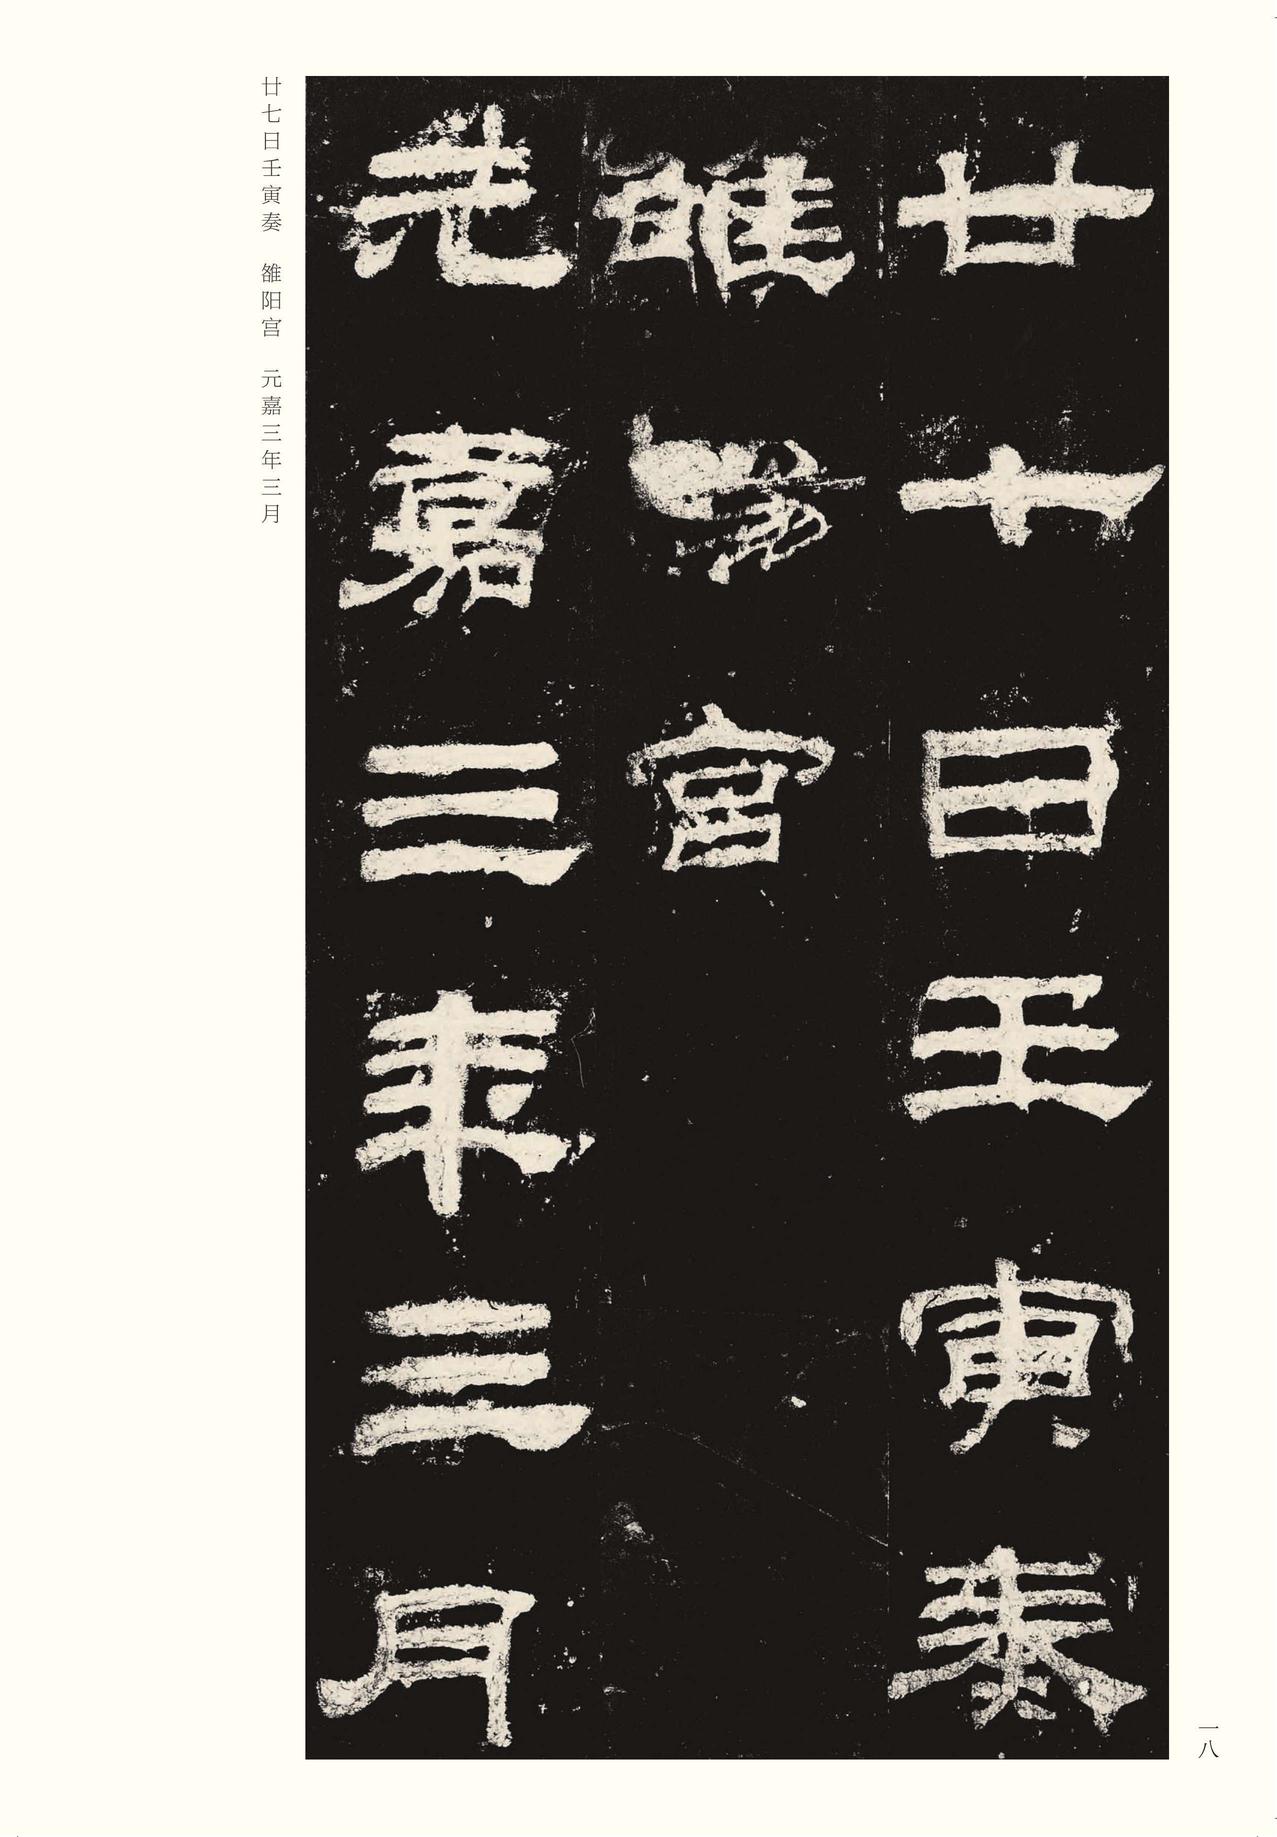 廿七日壬寅奏
雒陽宮
元嘉三年三月
廿七日壬寅奏　雒阳宫　元嘉三年三月
一八